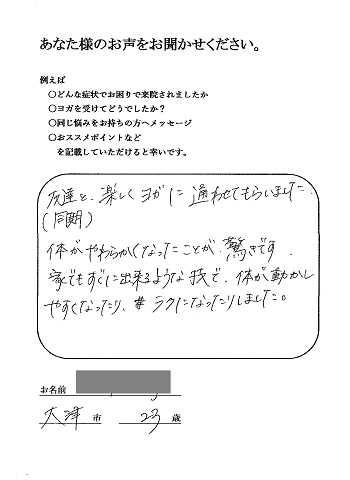 あなた様のお声をお聞かせください。
例えば
○どんな症状でお困りで来院されましたか
○ヨガを受けてどうでしたか?
○同じ悩みをお持ちの方へメッセージ
○おススメポイントなど
を記載していただけると幸いです。
友達と、楽しくヨガに通わせてもらいました。
(同期)
体がやわらかくなったことが、驚きです。
家でもすぐに出来るような技で、体が動かし
やすくなったり、ラクになったりしました。
お名前
大津 市 23 歳